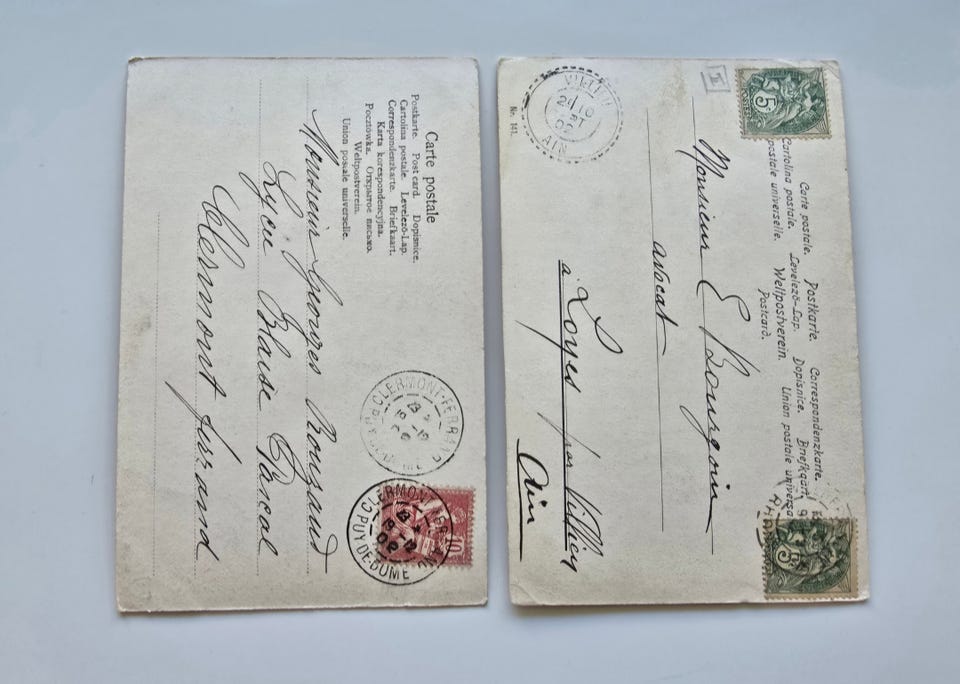 Carte postale
Postkarte. Post card. Dopisnice.
Cartolina postale. Levelező-Lap.
Correspondenzkarte. Briefkaart.
Karta korespondencyjna.
Pocztówka. Открытое письмо.
Weltpostverein.
Union postale universelle.
Monsieur Georges Rouzaud
Lycée Blaise Pascal
Clermont ferrand
CLERMONT-FERRAND
PUY-DE-DOME
CLERMONT-FERRAND
PUY-DE-DOME
10
Nr. 141.
AIN
T
5
Carte postale. Postkarte. Correspondenzkarte.
Cartolina postale. Levelező-Lap. Dopisnice. Briefkaart
postale universelle. Weltpostverein. Union postale universa
Postcard.
Monsieur E Bourgoin
avocat
à Loyes par Villieu
Ain
5